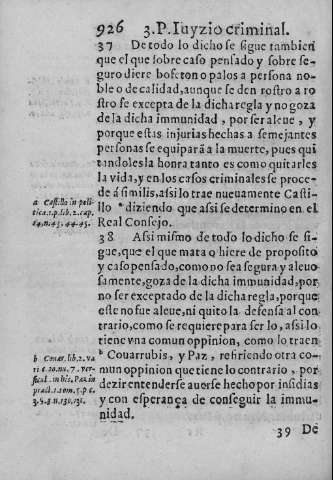 926 3. P. Iuyzio criminal.
37 De todo lo dicho se sigue tambien
que el que sobre caso pensado y sobre se-
guro diere bofeton o palos a persona no-
ble o de calidad, aunque se den rostro a ro
stro se excepta de la dicha regla y no goza
de la dicha immunidad, por ser aleue, y
porque estas injurias hechas a semejantes
personas se equipará a la muerte, pues qui
tandoles la honra tanto es como quitarles
la vida, y en los casos criminales se proce-
de á similis, assi lo trae nueuamente Casti-
llo ª diziendo que assi se determino en el
Real Consejo.
38 Assi mismo de todo lo dicho se si-
gue, que el que mata o hiere de proposito
y caso pensado, como no sea segura y aleuo
samente, goza de la dicha immunidad, por
no ser exceptado de la dicha regla, porque
este no fue aleue, ni quito la defensa al con
trario, como se requiere para ser lo, assi lo
tiene vna comun oppinion, como lo traen
ᵇ Couarrubis, y Paz, refiriendo otra co-
mun oppinion que tiene lo contrario, por
dezir entenderse auerse hecho por insidias
y con esperança de conseguir la immu-
nidad.
39 De
a Castillo in poli
tica.1.p.lib.2.cap.
14.n.43.44.45.
b Couar.lib.2.va
ri c.20.nu.7.ver-
sicul. in his, Paz in
pract.1.tom.5.p.c.